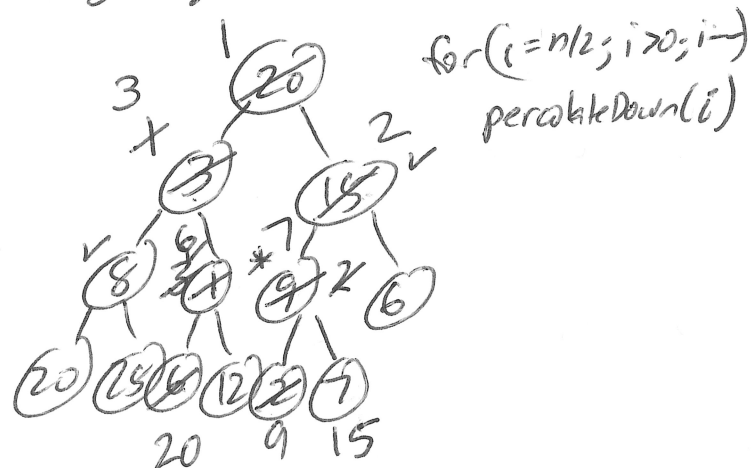 for(i=n/2; i>0; i--)
percolateDown(i)
1
20
3
2
3
15
6
7
8
1
*
9
2
6
20
25
12
2
7
20
9
15